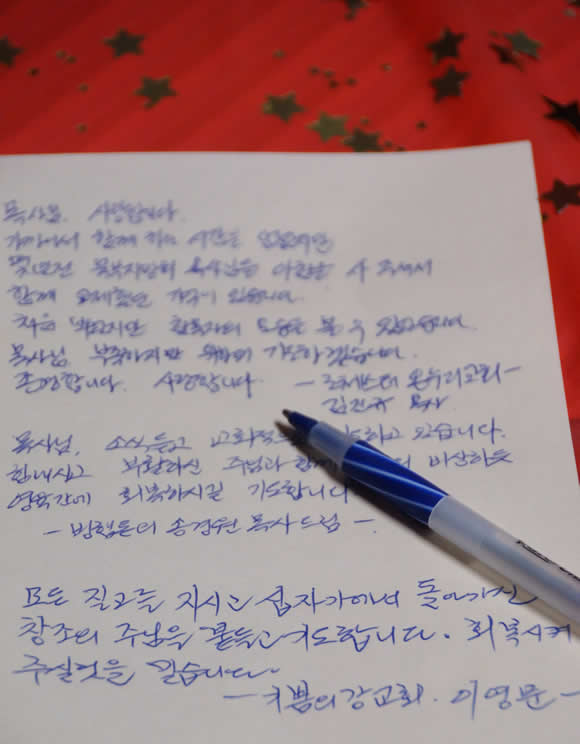 목사님. 사랑합니다.
가까이서 함께 하는 시간은 없었지만
몇년전 목사님을
함께 교제했던 기억이 있습니다.
처음 뵈었지만 볼 수 있었습니다.
목사님. 부족하지만 위하여 기도하겠습니다.
존경합니다. 사랑합니다. - 온누리교회 -
목사
목사님, 소식듣고 기도하고 있습니다.
힘내시고 부활하신 주님과 함께 비상하듯
영육간에 회복하시길 기도합니다
- 벙험튼더 송경원 목사드림 -.
모든 질고를 지시고 십자가에서 돌아가신
창조의 주님을 붙들고 기도합니다. 회복시켜
주실것을 믿습니다.
- 기쁨의강교회. 이영문 -